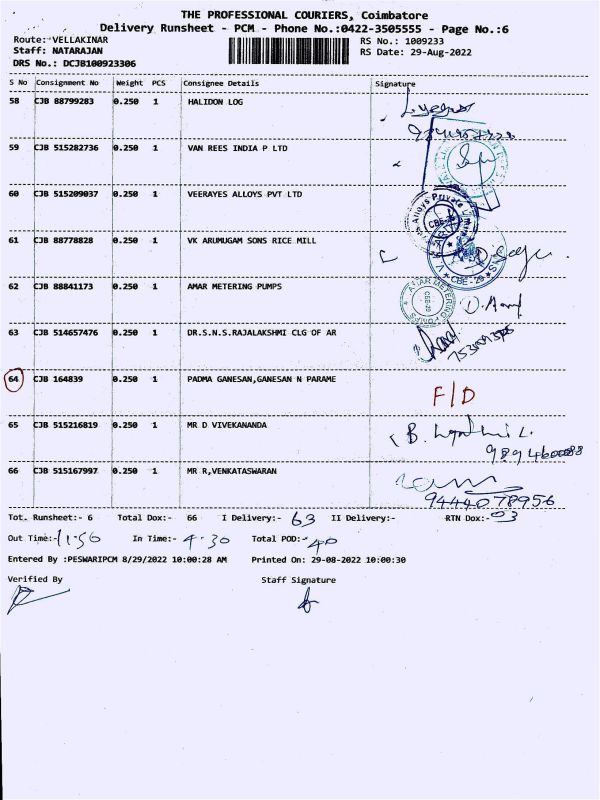 THE PROFESSIONAL COURIERS, Coimbatore
Delivery Runsheet - PCM - Phone No.:0422-3505555 - Page No.:6
Route: VELLAKINAR RS No.: 1009233
Staff: NATARAJAN RS Date: 29-Aug-2022
DRS No.: DCJB100923306
S No Consignment No Weight PCS Consignee Details Signature
58 CJB 88799283 0.250 1 HALIDON LOG
59 CJB 515282736 0.250 1 VAN REES INDIA P LTD
60 CJB 515209037 0.250 1 VEERAYES ALLOYS PVT LTD
61 CJB 88778828 0.250 1 VK ARUMUGAM SONS RICE MILL
CBE - 29
62 CJB 88841173 0.250 1 AMAR METERING PUMPS
AMAR METERING PUMPS CBE-29
63 CJB 514657476 0.250 1 DR.S.N.S.RAJALAKSHMI CLG OF AR
64 CJB 164839 0.250 1 PADMA GANESAN,GANESAN N PARAME F/D
65 CJB 515216819 0.250 1 MR D VIVEKANANDA
66 CJB 515167997 0.250 1 MR R,VENKATASWARAN
9444078956
Tot. Runsheet:- 6 Total Dox:- 66 I Delivery:- 63 II Delivery:- RTN Dox:- 03
Out Time:- 11.56 In Time:- 4.30 Total POD:- 40
Entered By :PESWARIPCM 8/29/2022 10:00:28 AM Printed On: 29-08-2022 10:00:30
Verified By Staff Signature